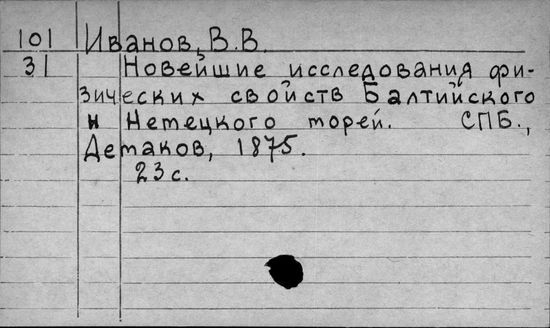 101 Иванов, В.В.
31 Новейшие исследования фи-
зических свойств Балтийского
и Нетецкого торей. СПБ.,
Детаков, 1875.
23 с.